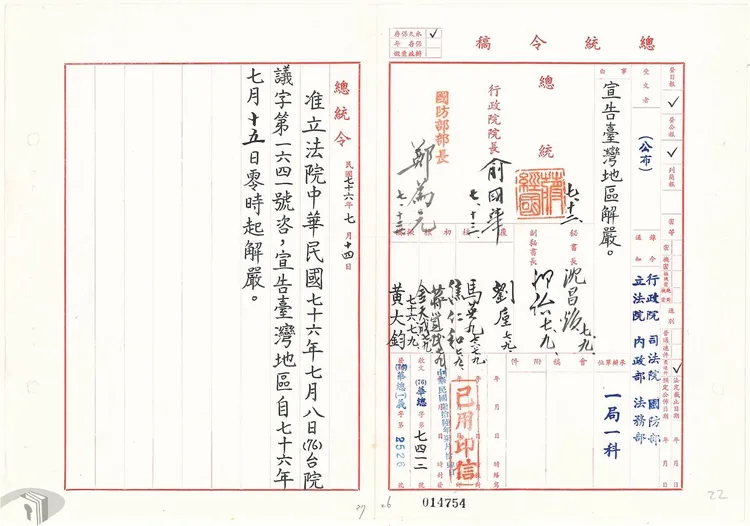 總統令稿
永久保存
保存 年
辦畢彙銷
登日報
登公報
列簡報
受文者
(公布)
事由
宣告臺灣地區解嚴。
總統
蔣經國
七、十三
行政院院長
俞國華
七、十三、
國防部部長
鄭為元
七、十三、
秘書長
沈昌煥
七、九、
副秘書長
七、九、
馬英九
焦仁和
黃大鈞
錄令通知
行政院 司法院 國防部
立法院 內政部 法務部
會稿
附件
一局一科
已用印信
收文(76)華總 字第 七四一二 號
發文(76)華總一義 字第 2526 號
014754
總統令
民國七十六年七月十四日
准立法院中華民國七十六年七月八日(76)台院
議字第一六四一號咨,宣告臺灣地區自七十六年
七月十五日零時起解嚴。
27
26
22